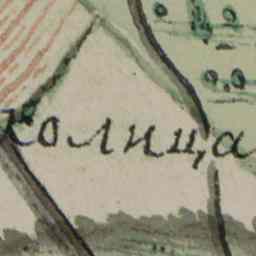 колица